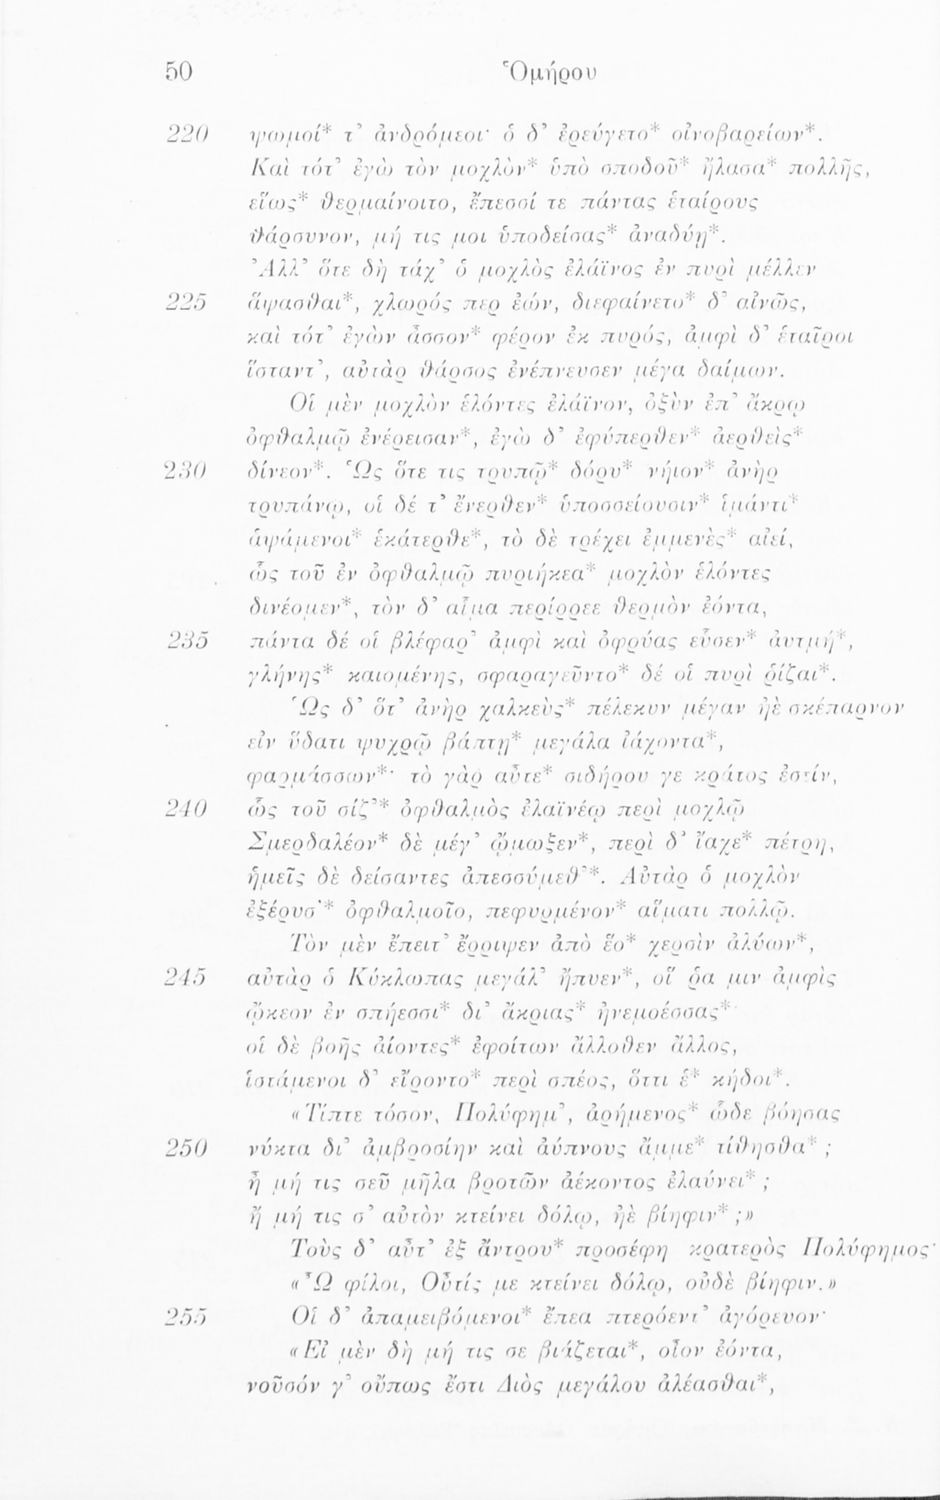 50 Ὁμήρου
220 ψωμοί* τ' ἀνδρόμεοι· ὁ δ' ἐρεύγετο* οἰνοβαρείων*.
Καὶ τότ' ἐγὼ τὸν μοχλὸν* ὑπὸ σποδοῦ* ἤλασα* πολλῆς,
εἵως* θερμαίνοιτο, ἔπεσσί τε πάντας ἑταίρους
θάρσυνον, μή τις μοι ὑποδείσας* ἀναδύῃ*.
Ἀλλ' ὅτε δὴ τάχ' ὁ μοχλὸς ἐλάϊνος ἐν πυρὶ μέλλεν
225 ἅψασθαι*, χλωρός περ ἐών, διεφαίνετο* δ' αἰνῶς,
καὶ τότ' ἐγὼν ἆσσον* φέρον ἐκ πυρός, ἀμφὶ δ' ἑταῖροι
ἵσταντ', αὐτὰρ θάρσος ἐνέπνευσεν μέγα δαίμων.
Οἱ μὲν μοχλὸν ἑλόντες ἐλάϊνον, ὀξὺν ἐπ' ἄκρῳ
ὀφθαλμῷ ἐνέρεισαν*, ἐγὼ δ' ἐφύπερθεν* ἀερθεὶς*
230 δίνεον*. Ὡς ὅτε τις τρυπῷ* δόρυ* νήιον* ἀνὴρ
τρυπάνῳ, οἱ δέ τ' ἔνερθεν* ὑποσσείουσιν* ἱμάντι*
ἁψάμενοι* ἑκάτερθε*, τὸ δὲ τρέχει ἐμμενὲς* αἰεί,
ὣς τοῦ ἐν ὀφθαλμῷ πυριήκεα* μοχλὸν ἑλόντες
δινέομεν*, τὸν δ' αἷμα περίρρεε θερμὸν ἐόντα,
235 πάντα δέ οἱ βλέφαρ' ἀμφὶ καὶ ὀφρύας εὗσεν* ἀυτμή*,
γλήνης* καιομένης, σφαραγεῦντο* δέ οἱ πυρὶ ῥίζαι*.
Ὡς δ' ὅτ' ἀνὴρ χαλκεὺς* πέλεκυν μέγαν ἠὲ σκέπαρνον
εἰν ὕδατι ψυχρῷ βάπτῃ* μεγάλα ἰάχοντα*,
φαρμάσσων*· τὸ γὰρ αὖτε* σιδήρου γε κράτος ἐστίν,
240 ὣς τοῦ σίζ'* ὀφθαλμὸς ἐλαϊνέῳ περὶ μοχλῷ
Σμερδαλέον* δὲ μέγ' ᾤμωξεν*, περὶ δ' ἴαχε* πέτρη,
ἡμεῖς δὲ δείσαντες ἀπεσσύμεθ'*. Αὐτὰρ ὁ μοχλὸν
ἐξέρυσ'* ὀφθαλμοῖο, πεφυρμένον* αἵματι πολλῷ.
Τὸν μὲν ἔπειτ' ἔρριψεν ἀπὸ ἕο* χερσὶν ἀλύων*,
245 αὐτὰρ ὁ Κύκλωπας μεγάλ' ἤπυεν*, οἵ ῥα μιν ἀμφὶς
ᾤκεον ἐν σπήεσσι* δι' ἄκριας* ἠνεμοέσσας*·
οἱ δὲ βοῆς ἀίοντες* ἐφοίτων ἄλλοθεν ἄλλος,
ἱστάμενοι δ' εἴροντο* περὶ σπέος, ὅττι ἑ* κήδοι*.
«Τίπτε τόσον, Πολύφημ', ἀρήμενος* ὧδε βόησας
250 νύκτα δι' ἀμβροσίην καὶ ἀύπνους ἄμμε* τίθησθα*;
ἦ μή τις σεῦ μῆλα βροτῶν ἀέκοντος ἐλαύνει*;
ἢ μή τις σ' αὐτὸν κτείνει δόλῳ, ἠὲ βίηφιν*;»
Τοὺς δ' αὖτ' ἐξ ἄντρου* προσέφη κρατερὸς Πολύφημος·
«Ὦ φίλοι, Οὖτίς με κτείνει δόλῳ, οὐδὲ βίηφιν.»
255 Οἱ δ' ἀπαμειβόμενοι* ἔπεα πτερόεντ' ἀγόρευον·
«Εἰ μὲν δὴ μή τις σε βιάζεται*, οἷον ἐόντα,
νοῦσόν γ' οὔπως ἔστι Διὸς μεγάλου ἀλέασθαι*,